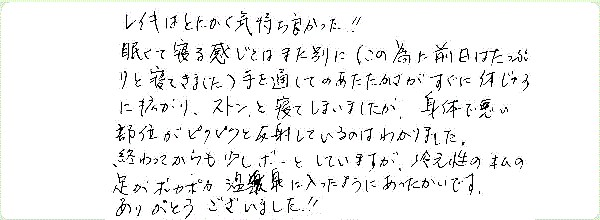 レイキはとにかく気持ち良かった!!
眠くて寝る感じとはまた別に（この為に前日はたっぷ
りと寝てきました）手を通してのあたたかさがすぐに体じゅう
に拡がり、ストンと寝てしまいましたが、身体で悪い
部位がピクピクと反射しているのはわかりました。
終わってからも少しボーとしていますが、冷え性の私の
足がポカポカ温泉に入ったようにあったかいです。
ありがとうございました!!